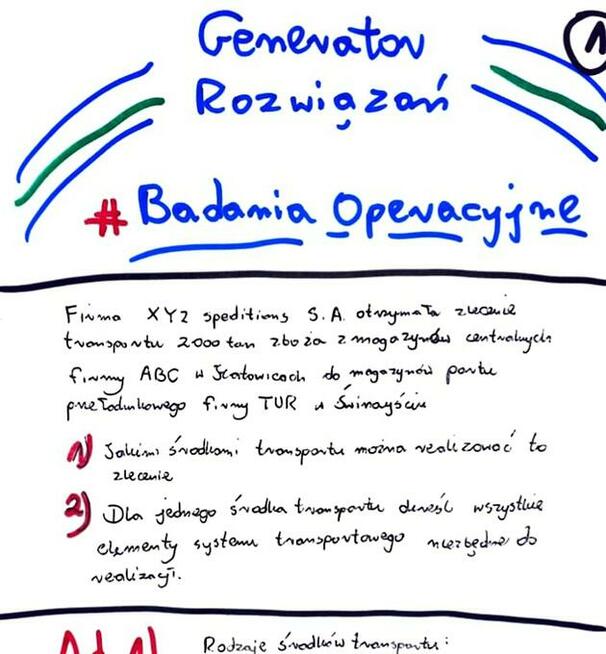 Generator
1
Rozwiązań
# Badania Operacyjne
Firma XYZ speditions S.A. otrzymała zlecenie
transportu 2000 ton zboża z magazynów centralnych
firmy ABC w Katowicach do magazynów portu
przeładunkowego firmy TUR w Świnoujściu
1) Jakimi środkami transportu można realizować to
zlecenie
2) Dla jednego środka transportu określ wszystkie
elementy systemu transportowego niezbędne do
realizacji.
Ad 1) Rodzaje środków transportu: